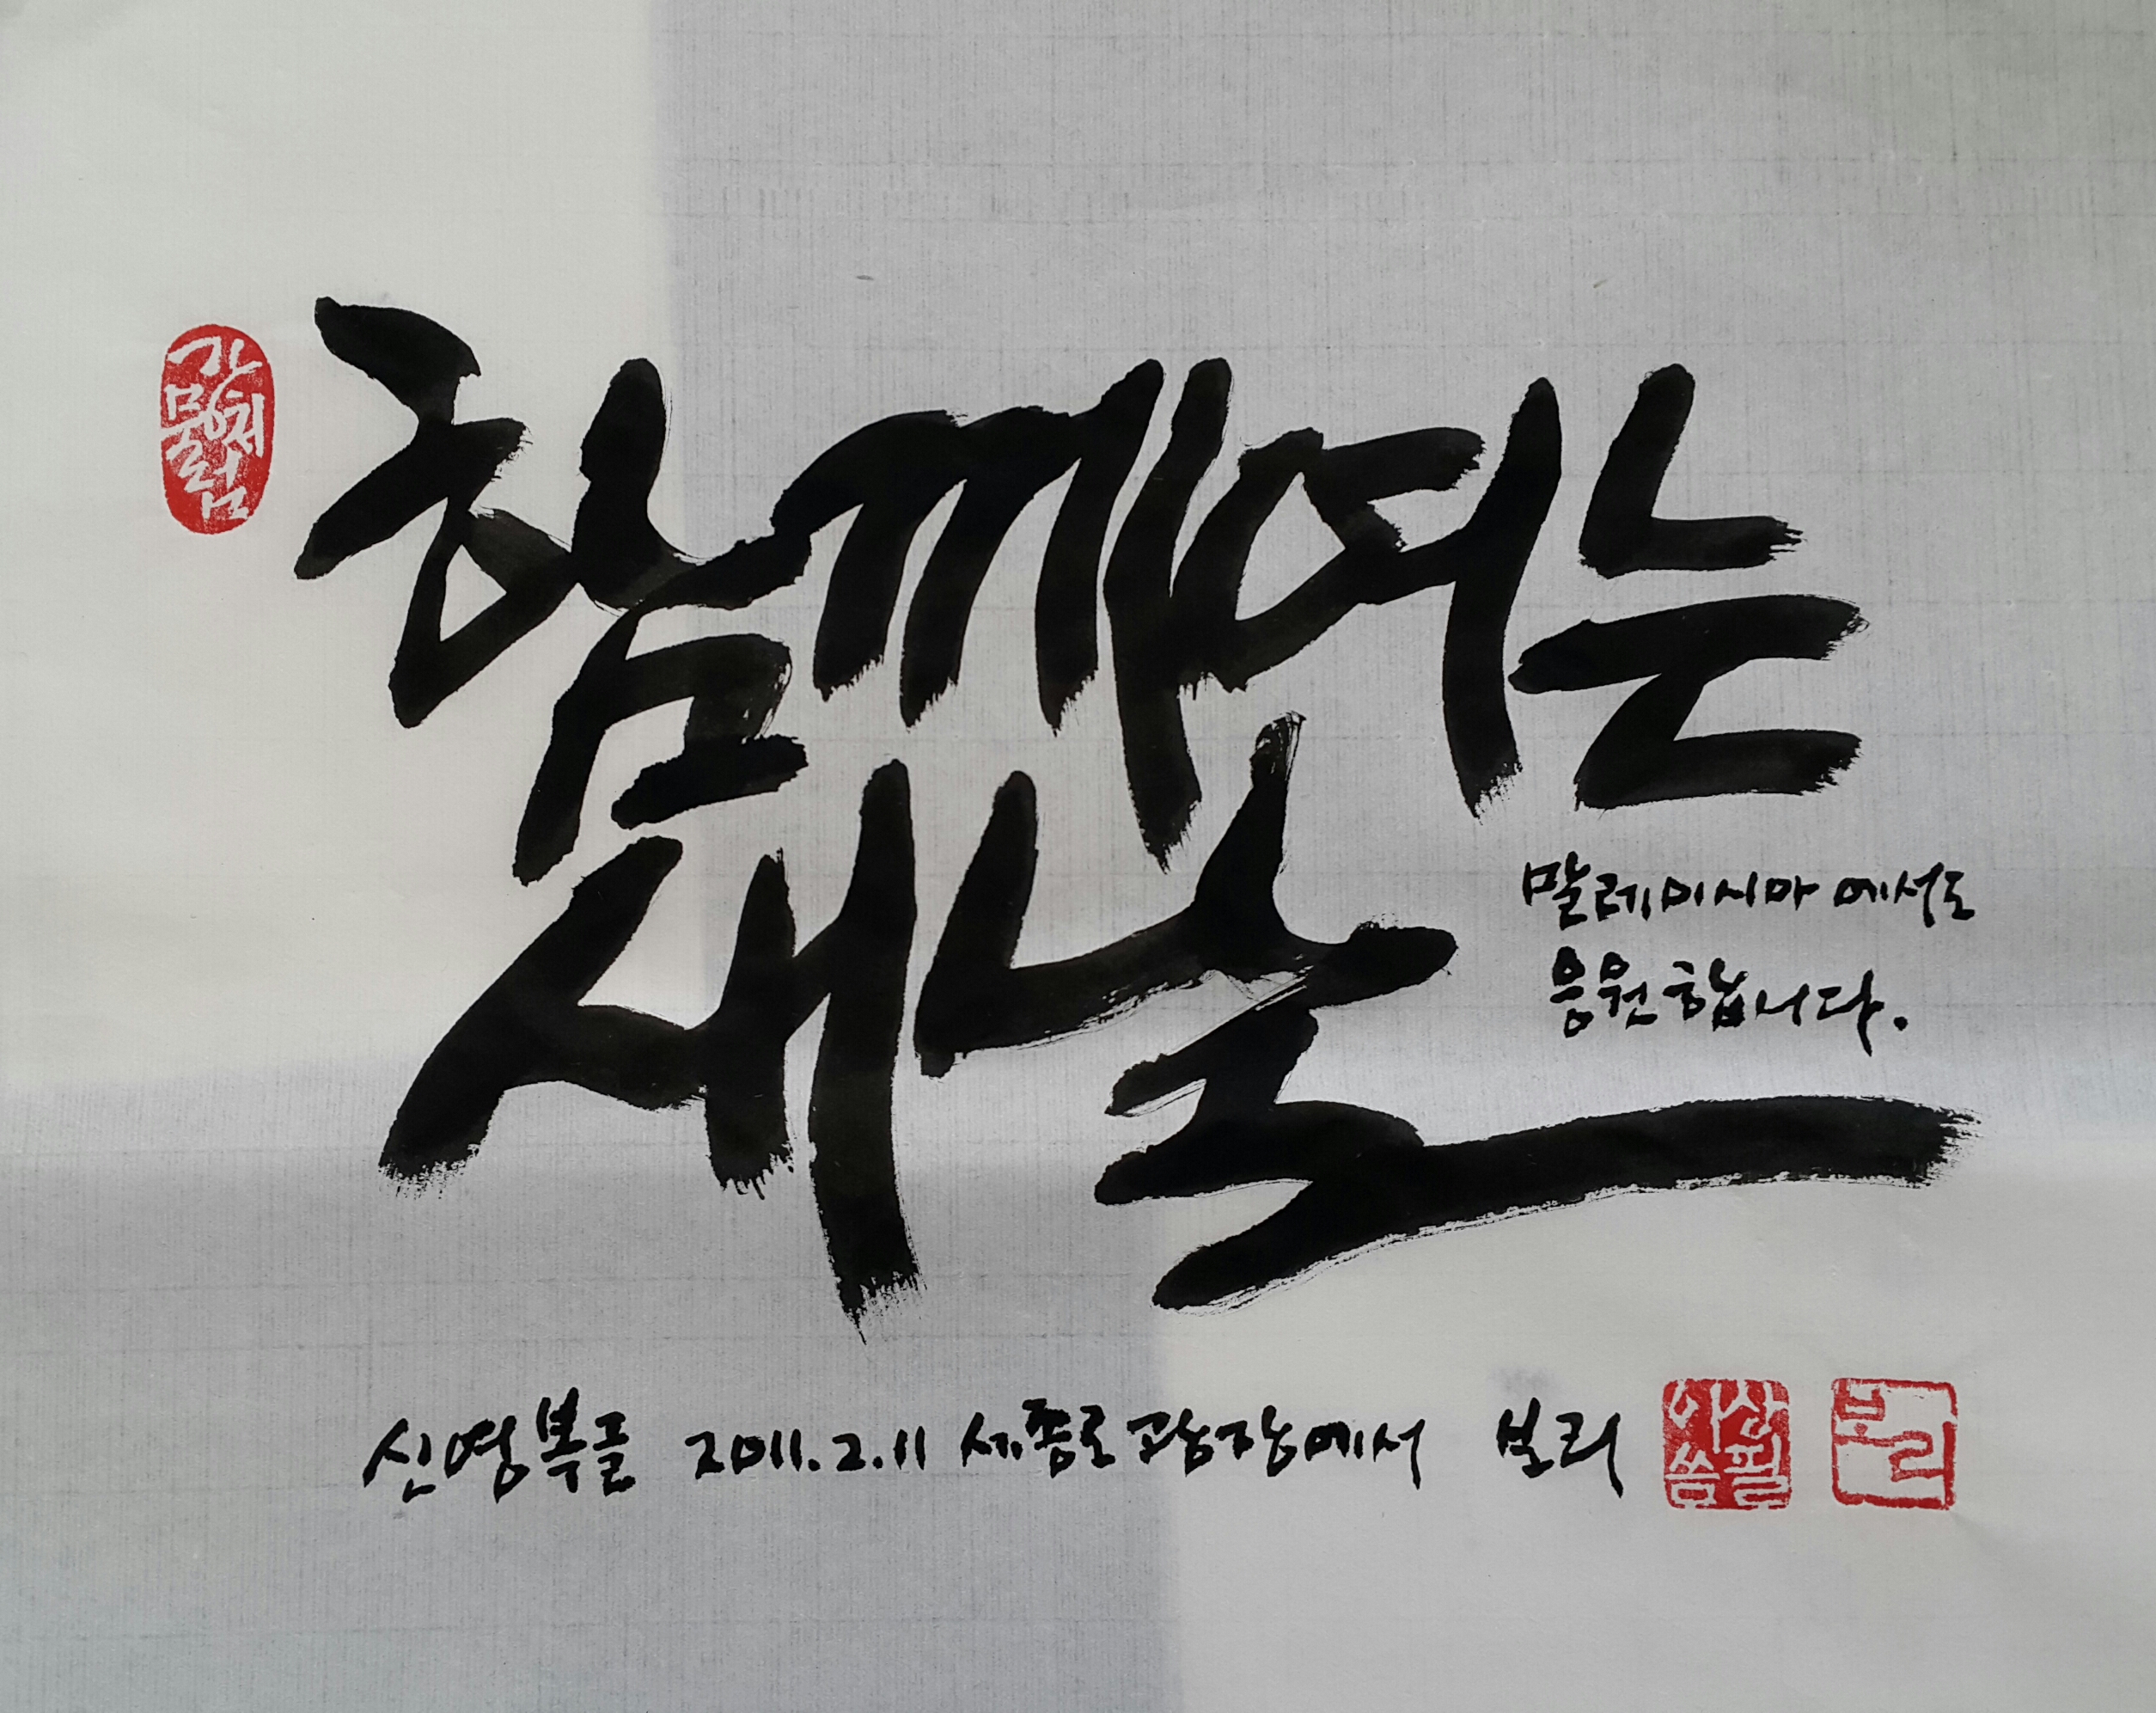 강물처럼
함께여는
새날
말레이시아에서도
응원합니다.
신영복글 2011.2.11 세종로광장에서 보리
이산
쏨필
보리